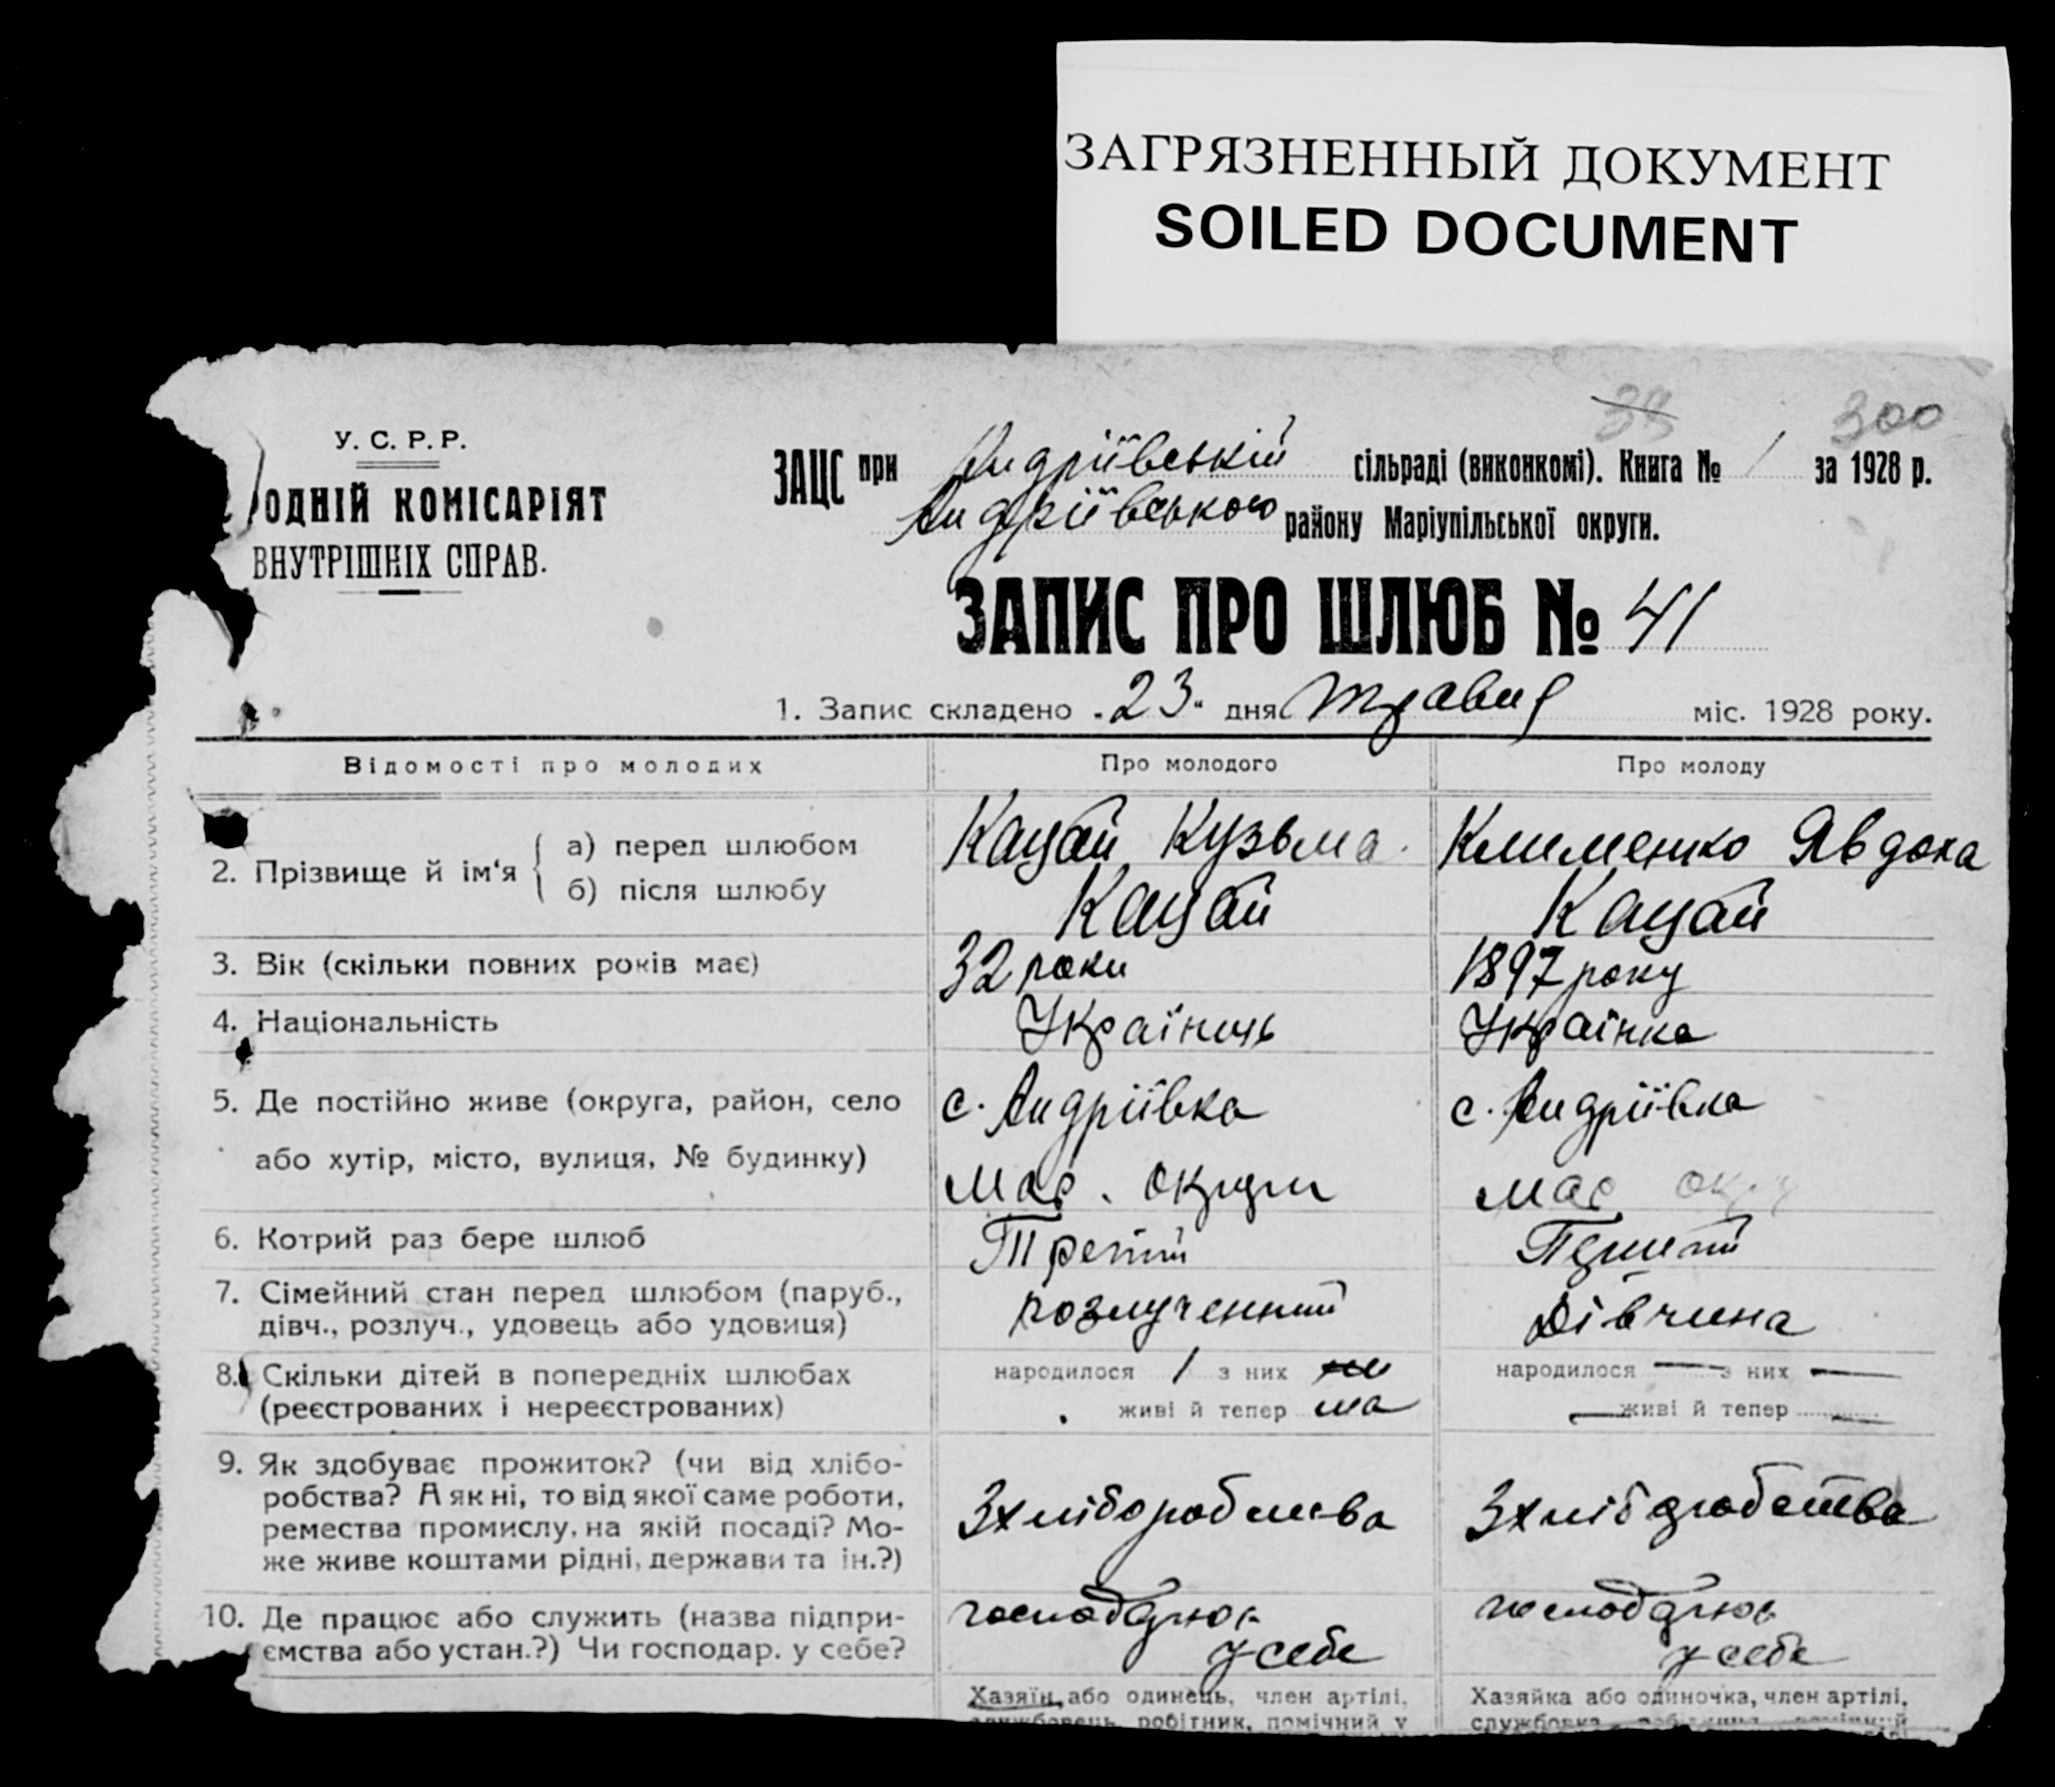 ЗАГРЯЗНЕННЫЙ ДОКУМЕНТ
SOILED DOCUMENT
38 300
У. С. Р. Р.
ОДНІЙ КОМІСАРІЯТ
ВНУТРІШНІХ СПРАВ.
ЗАЦС при Андріївській сільраді (виконкомі). Книга № 1 за 1928 р.
Андріївського району Маріупільської округи.
ЗАПИС ПРО ШЛЮБ № 41
1. Запис складено „23“ дня травня міс. 1928 року.
Відомості про молодих Про молодого Про молоду
2. Прізвище й ім‘я { а) перед шлюбом Кацай Кузьма Клименко Явдоха
б) після шлюбу Кацай Кацай
3. Вік (скільки повних років має) 32 роки 1897 року
4. Національність Українець Українка
5. Де постійно живе (округа, район, село с. Андріївка с. Андріївка
або хутір, місто, вулиця, № будинку) Мар. округи Мар окру
6. Котрий раз бере шлюб Третій Перший
7. Сімейний стан перед шлюбом (паруб., дівч., розлуч., удовець або удовиця) розлученний Дівчина
8. Скільки дітей в попередніх шлюбах народилося 1 з них не народилося — з них —
(реєстрованих і нереєстрованих) живі й тепер ма — живі й тепер —
9. Як здобуває прожиток? (чи від хлібо-
робства? А як ні, то від якої саме роботи, З хліборобства З хліборобства
ремества промислу, на якій посаді? Мо-
же живе коштами рідні, держави та ін.?)
10. Де працює або служить (назва підпри-
ємства або устан.?) Чи господар. у себе? господарює у себе господарює у себе
Хазяїн, або одинець, член артілі, Хазяйка або одиночка, член артілі,
службовець, робітник, помічний у службовка